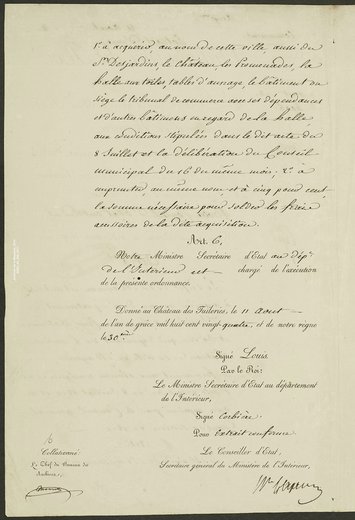 1º à acquérir, au nom de cette ville aussi du
Sr. Desjardins, le château, les promenades, la
halle aux toiles, tables d'aunage, le bâtiment du
siége le tribunal de commerce avec ses dépendances
et d'autres bâtimens en regard de la halle
aux conditions stipulées dans le dit acte du
8 Juillet et la délibération du Conseil
municipal du 16 du même mois; 2º à
emprunter, au même nom et à cinq pour cent
la somme nécessaire pour solder les frais
accessoires de la dite acquisition.
Art. 6,
Notre Ministre Secrétaire d'État au dépt.
de l'Intérieur est chargé de l'exécution
de la présente ordonnance.
Donné au Château des Tuileries, le 11 Août
de l'an de grâce mil huit cent vingt-quatre, et de notre règne
le 30ème
Signé Louis
Par le Roi:
Le Ministre Secrétaire d'État au département
de l'Intérieur,
Signé Corbière
Pour Extrait conforme
Le Conseiller d'État,
Secrétaire général du Ministère de l'Intérieur,
Collationné:
Le Chef du Bureau des
Archives,